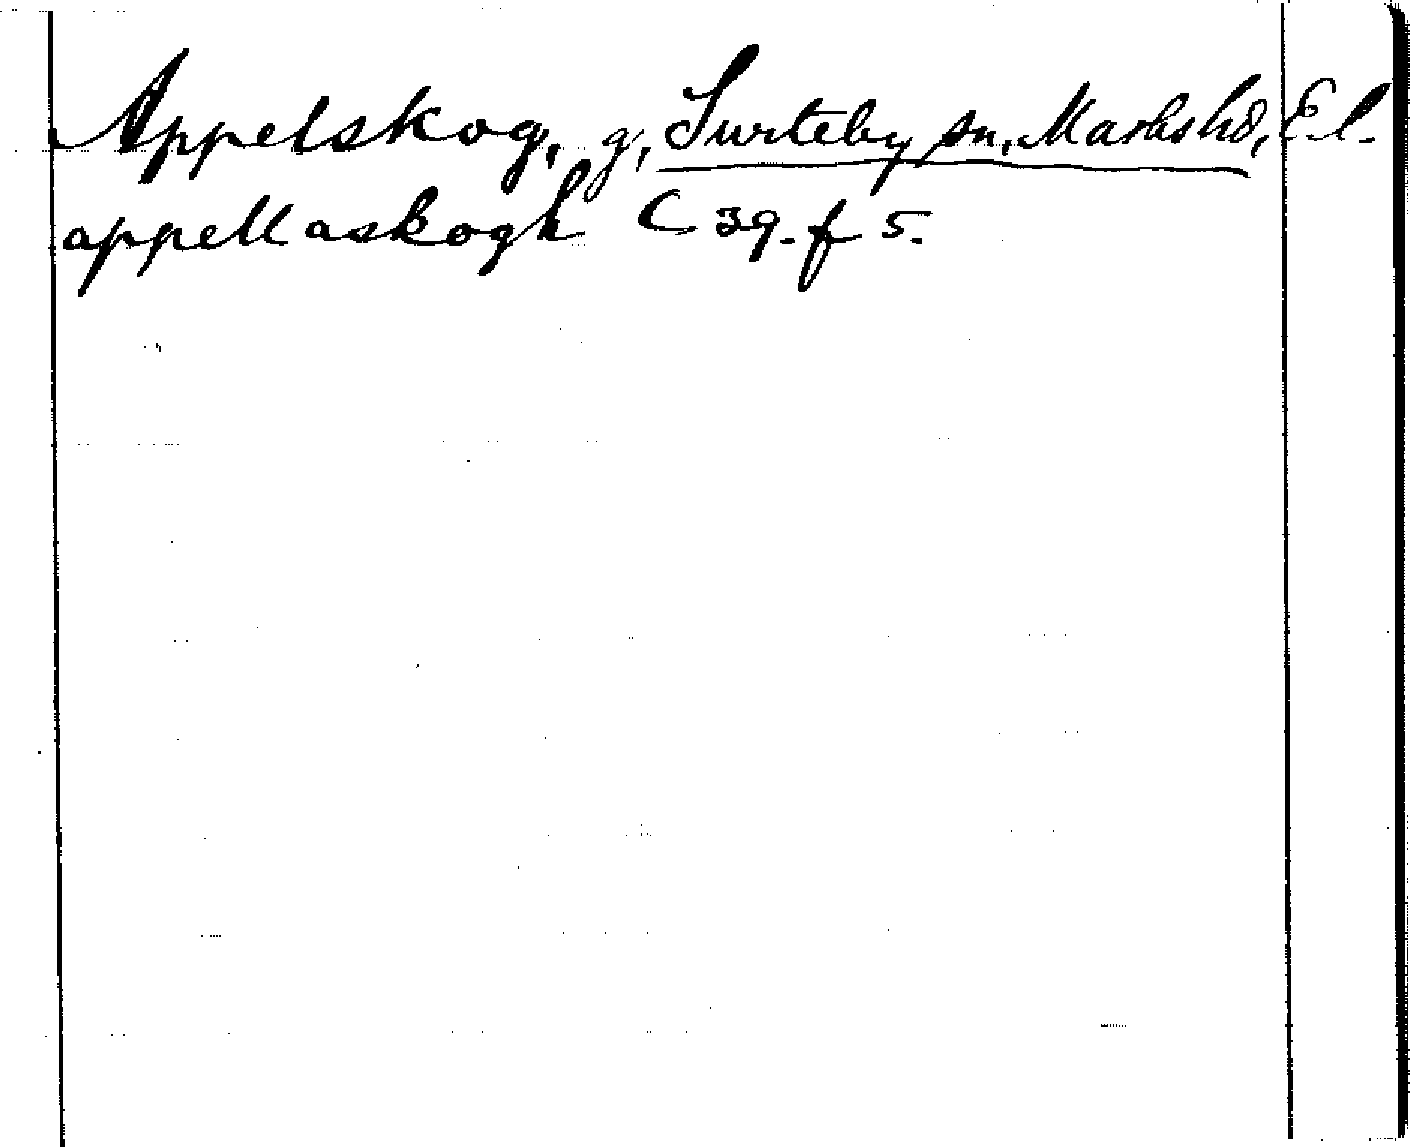 Appelskog, g, Surteby sn, Marks hd, E.l.
appellaskogh C 39. f 5.